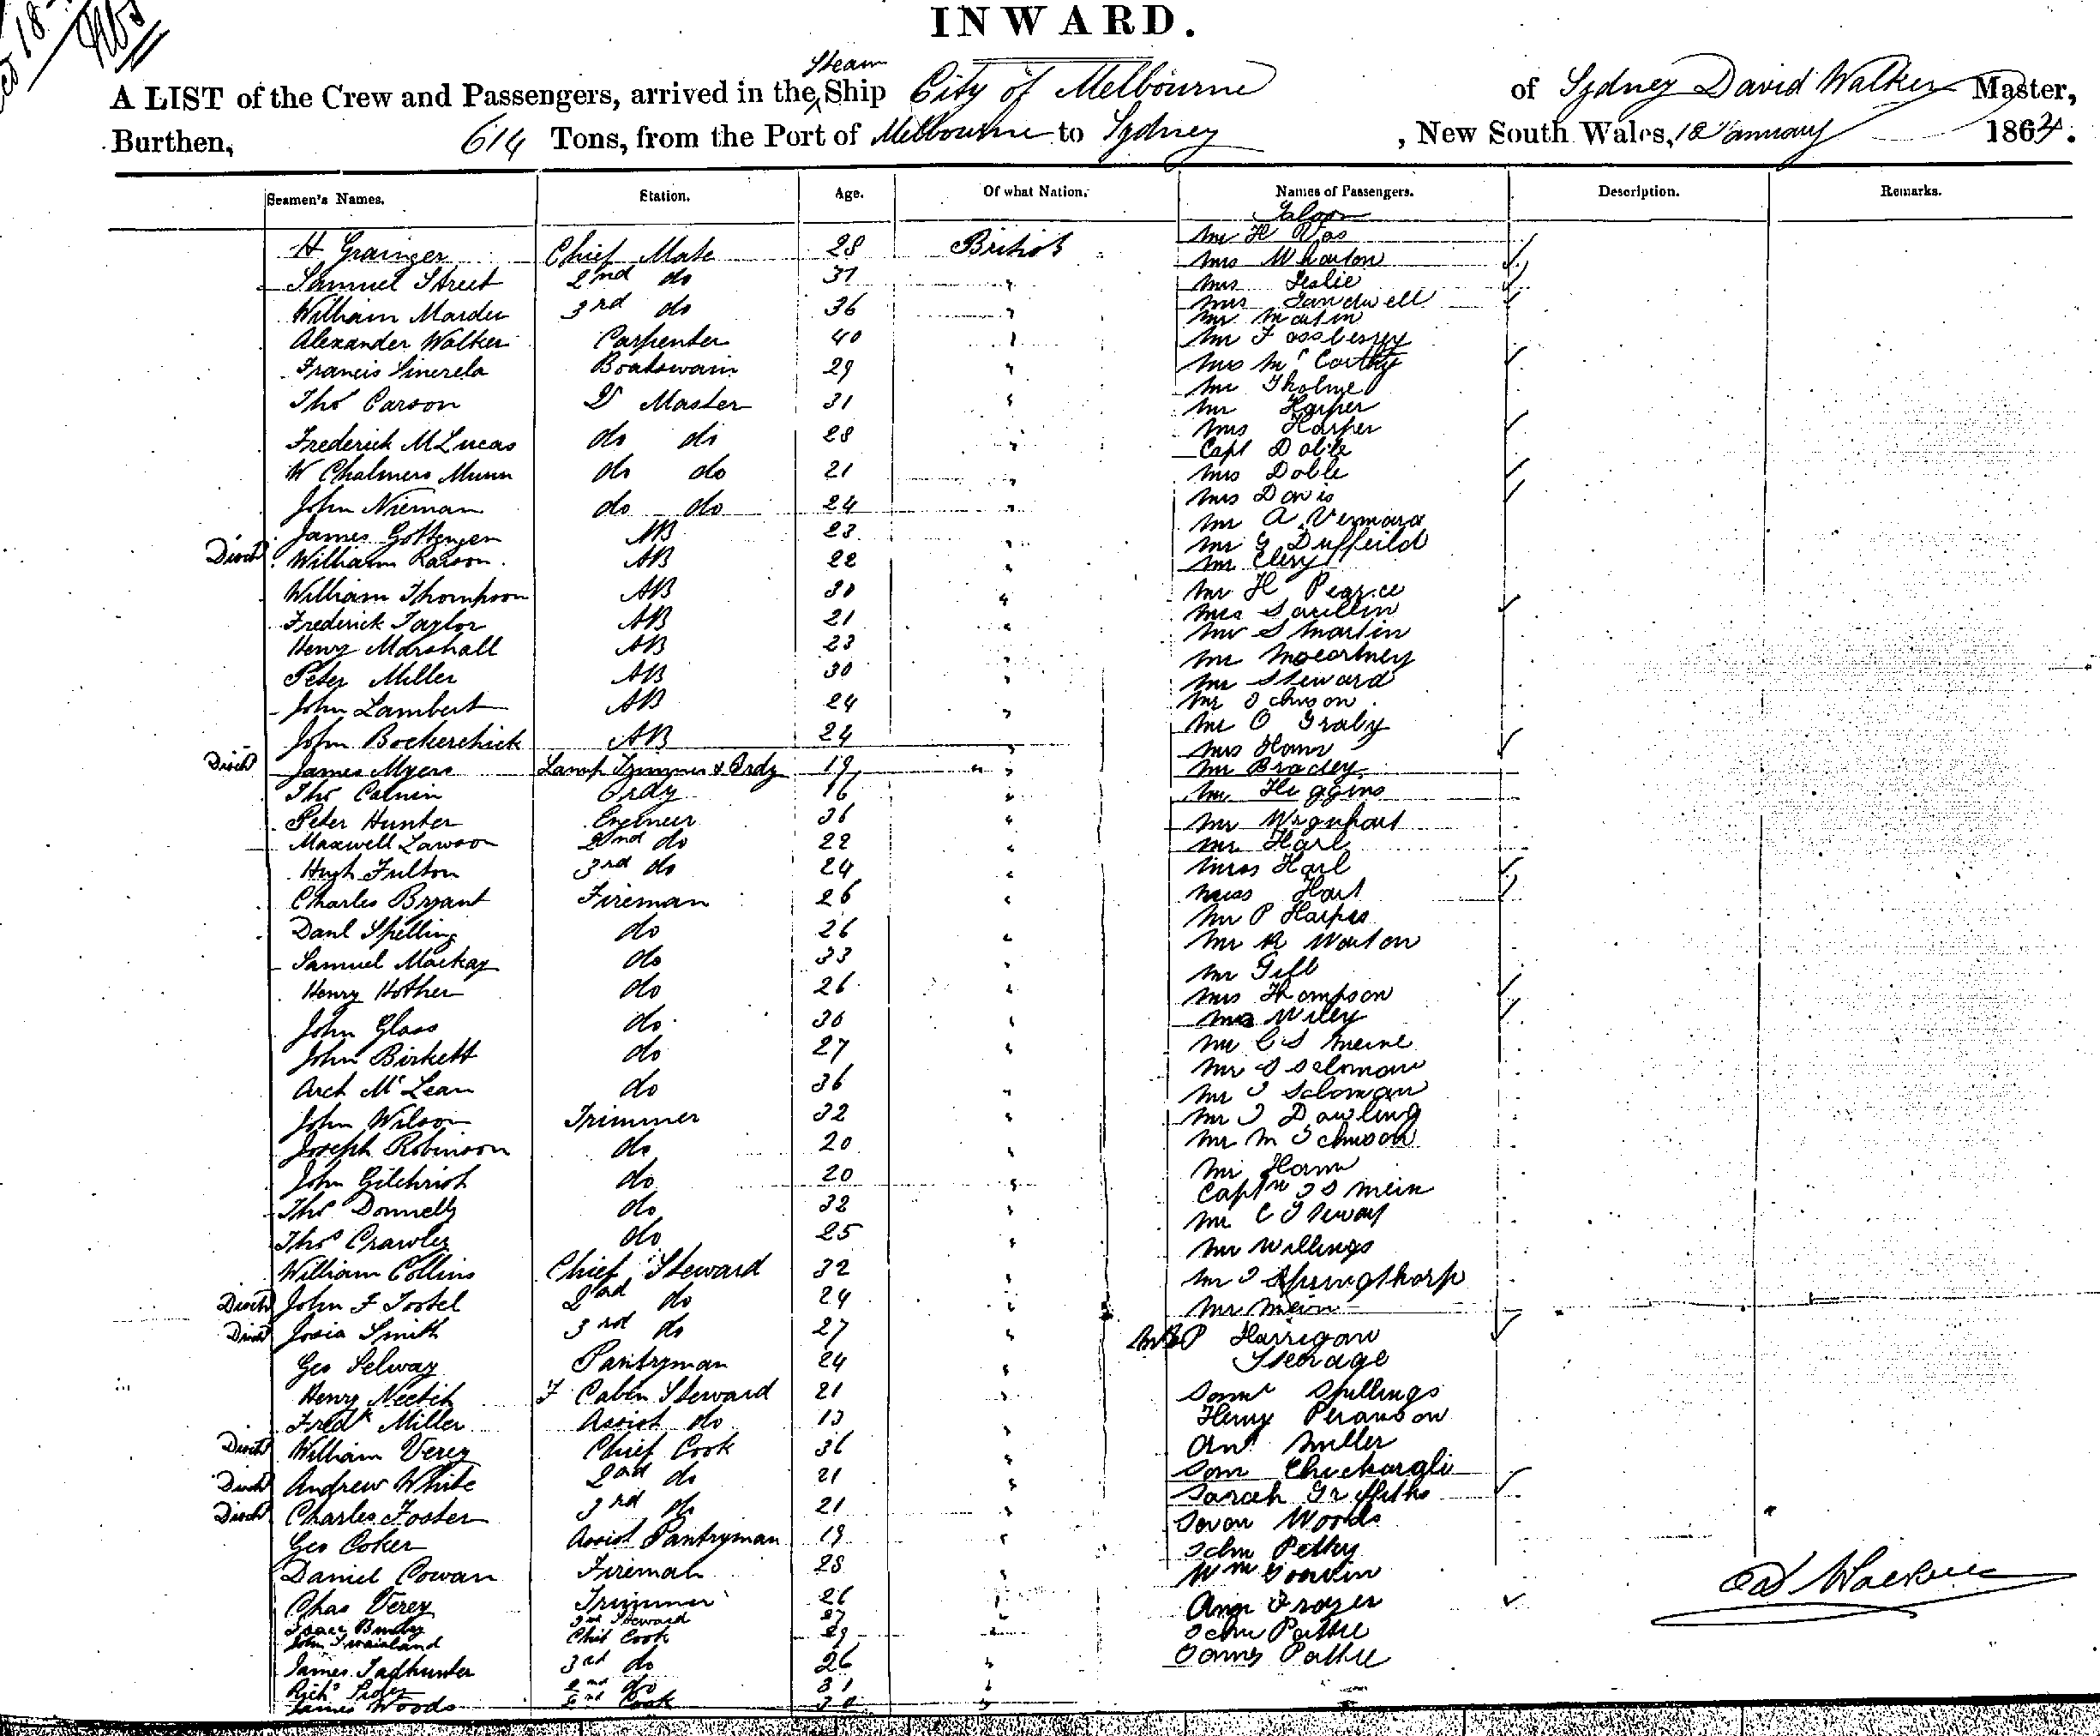 INWARD.
A LIST of the Crew and Passengers, arrived in the Steam Ship City of Melbourne of Sydney David Walker Master,
Burthen, 614 Tons, from the Port of Melbourne to Sydney, New South Wales, 18 January 1864.
Seamen's Names. Station. Age. Of what Nation. Names of Passengers. Description. Remarks.
Saloon
H Grainger Chief Mate 28 British Mr H Vas
Mrs Wharton
Samuel Street 2nd do 37 " Mrs Leslie
William Marder 3rd do 36 " Mrs Gandwell
Mr Martin
Alexander Walker Carpenter 40 " Mr Fossberry
Francis Boatswain 29 " Mrs McCarthy
Mr Tholme
Thos Carson Qr Master 31 " Mr Harper
Frederick M Lucas do do 28 " Mrs Harper
Capt Doble
W Chalmers Munn do do 21 " Mrs Doble
John Nieman do do 24 " Mrs Davis
Mr A Vermara
James Gottengen AB 23 " Mr G Duffeild
Discd William Rawson AB 22 " Mr Clery
William Thompson AB 30 " Mr H Pearce
Frederick Taylor AB 21 " Mrs
Mr S Martin
Henry Marshall AB 23 " Mr Macartney
Peter Miller AB 30 " Mr Steward
John Lambert AB 24 " Mr Johnson
Mr O Graby
John Bockerchick AB 24 " Mrs Hann
Discd James Myers Lamp Trimmer & Ordy 19 " Mr Bradey
Thos Calvin Ordy 16 " Mr Higgins
Peter Hunter Engineer 36 " Mr
Maxwell Lawson 2nd do 22 " Mr Harl
Hugh Fulton 3rd do 24 " Miss Harl
Charles Bryant Fireman 26 " Miss Hart
Mr P Harper
Danl Spelling do 26 " Mr R Warton
Samuel Mackay do 33 " Mr Gill
Henry Hother do 26 " Mrs Thompson
John Glass do 36 " Mrs Wiley
John Birkett do 27 " Mr C S Meine
Mr S Solomon
Arch McLean do 36 " Mr J Soloman
John Wilson Trimmer 32 " Mr J Dowling
Joseph Robinson do 20 " Mr M Johnson
John Gilchrist do 20 " Mr Hann
Captn J S Mein
Thos Donnelly do 32 " Mr C Stewart
Thos Crawley do 25 " Mr Willings
William Collins Chief Steward 32 " Mr J Springthorp
Discd John F Tostel 2nd do 24 " Mr Mein
Discd Josia Smith 3rd do 27 " P Harrigan
Geo Selway Pantryman 24 " Steerage
Henry Neetich F Cabin Steward 21 " Saml Spillings
Fredk Miller Assist do 19 " Henry Peranson
Discd William Verey Chief Cook 36 " Ant Miller
Discd Andrew White 2nd do 21 " Sam
Sarah Griffiths
Discd Charles Foster 3rd do 21 " Woods
Geo Coker Assist Pantryman 19 " John Pethy
Daniel Cowan Fireman 28 " Wm Goodin
Chas Verey Trimmer 26 " Ann Frazer
Isaac Busby 2nd Steward 27 " John Pattie
John Swainland Chief Cook 29 "
James Tadhunter 3rd do 26 " James Pattie
Richd 2nd do 31 "
James Woods 2nd Cook 30 "